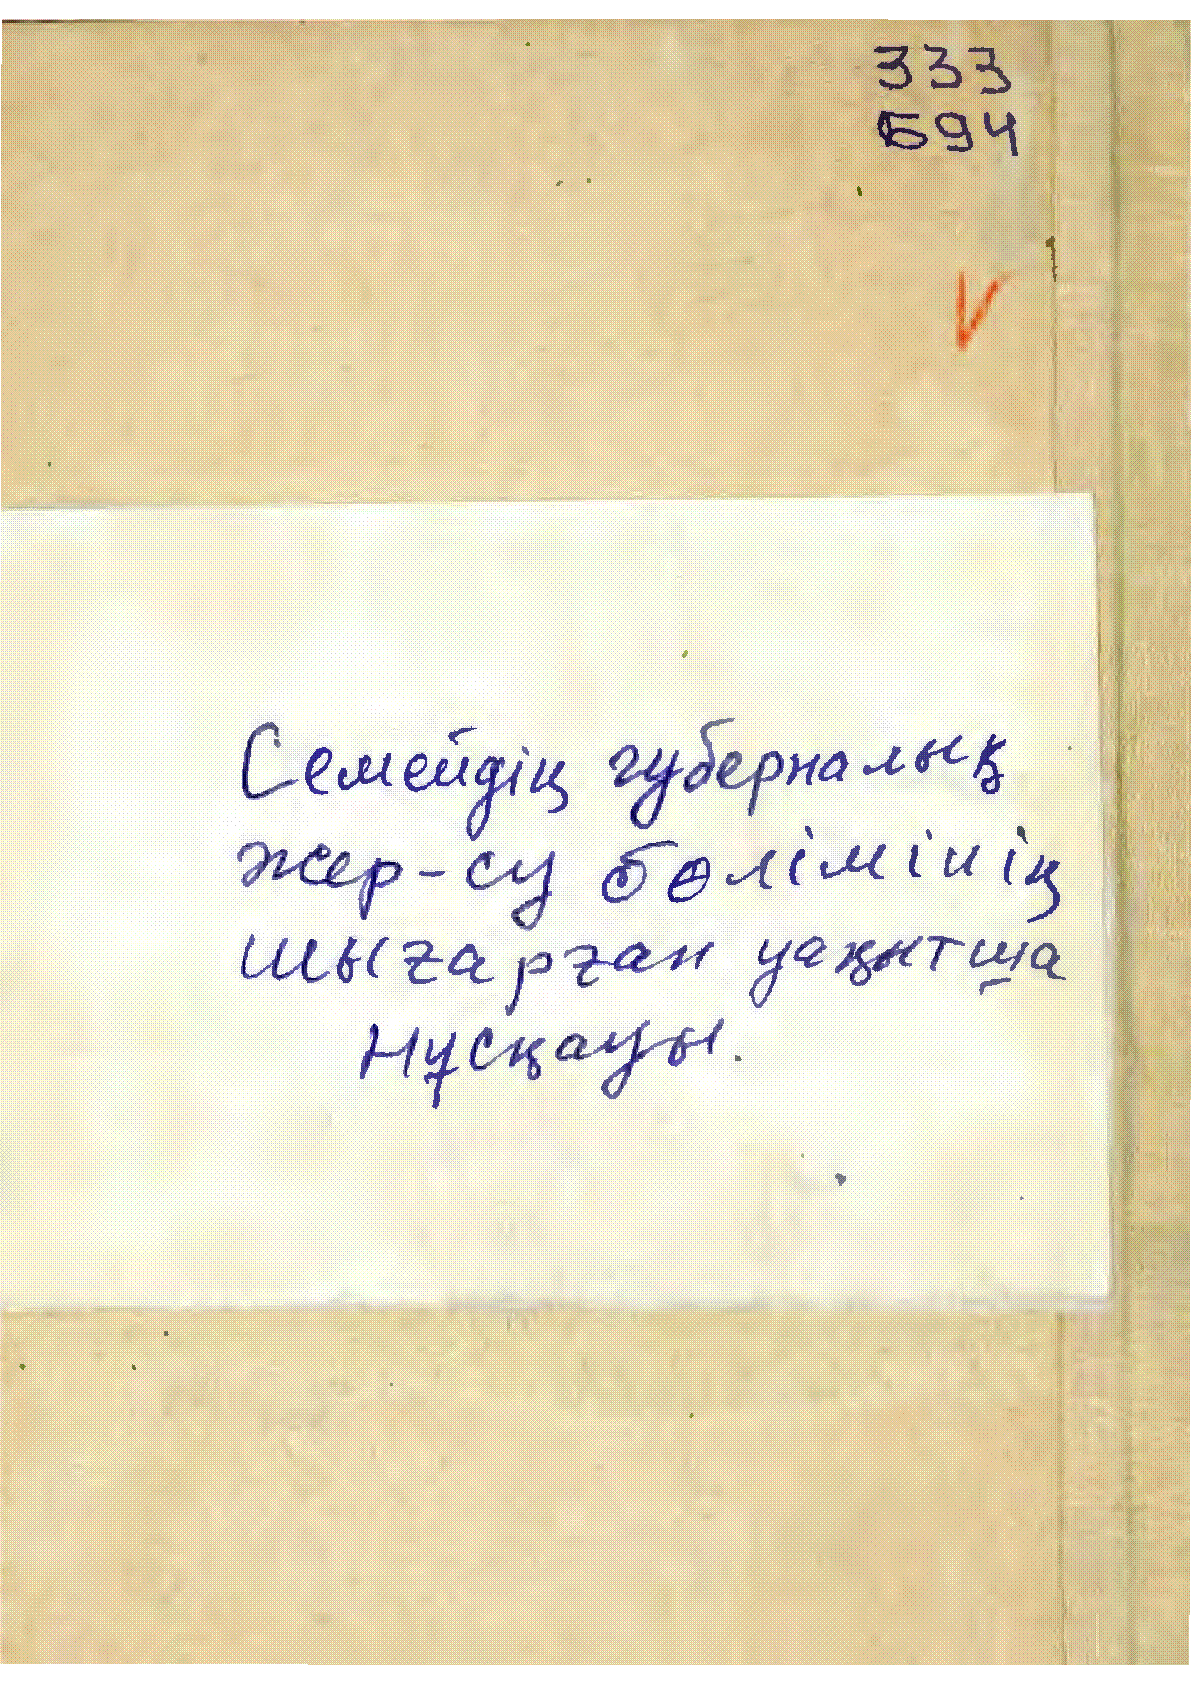 333
Б94
V
Семейдің губерналық
жер-су бөлімінің
шығарған уақытша
нұсқауы.